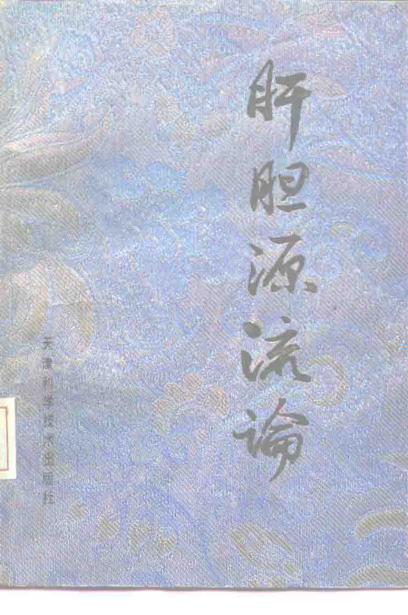 肝胆源流論
天津科学技术出版社